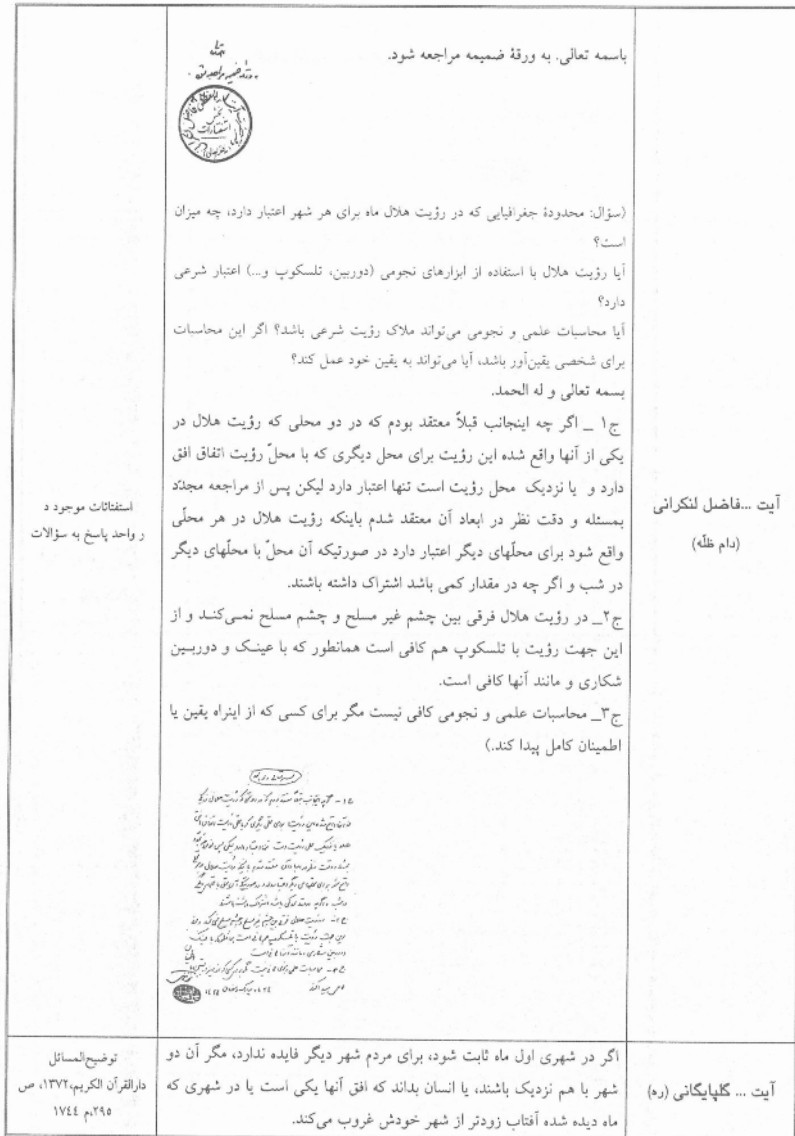 آیت ...فاضل لنکرانی
(دام ظلّه)
باسمه تعالی. به ورقۀ ضمیمه مراجعه شود.
(سؤال: محدودۀ جغرافیایی که در رؤیت هلال ماه برای هر شهر اعتبار دارد، چه میزان
است؟
آیا رؤیت هلال با استفاده از ابزارهای نجومی (دوربین، تلسکوپ و...) اعتبار شرعی
دارد؟
آیا محاسبات علمی و نجومی می‌تواند ملاک رؤیت شرعی باشد؟ اگر این محاسبات
برای شخصی یقین‌آور باشد، آیا می‌تواند به یقین خود عمل کند؟
بسمه تعالی و له الحمد.
ج۱ _ اگر چه اینجانب قبلاً معتقد بودم که در دو محلی که رؤیت هلال در
یکی از آنها واقع شده این رؤیت برای محل دیگری که با محلّ رؤیت اتفاق افق
دارد و یا نزدیک محل رؤیت است تنها اعتبار دارد لیکن پس از مراجعه مجدّد
بمسئله و دقت نظر در ابعاد آن معتقد شدم باینکه رؤیت هلال در هر محلّی
واقع شود برای محلّهای دیگر اعتبار دارد در صورتیکه آن محلّ با محلّهای دیگر
در شب و اگر چه در مقدار کمی باشد اشتراک داشته باشند.
ج۲_ در رؤیت هلال فرقی بین چشم غیر مسلح و چشم مسلح نمی‌کند و از
این جهت رؤیت با تلسکوپ هم کافی است همانطور که با عینک و دوربین
شکاری و مانند آنها کافی است.
ج۳_ محاسبات علمی و نجومی کافی نیست مگر برای کسی که از اینراه یقین یا
اطمینان کامل پیدا کند.)
استفتائات موجود د
ر واحد پاسخ به سؤالات
آیت ... گلپایگانی (ره)
اگر در شهری اول ماه ثابت شود، برای مردم شهر دیگر فایده ندارد، مگر آن دو
شهر با هم نزدیک باشند، یا انسان بداند که افق آنها یکی است یا در شهری که
ماه دیده شده آفتاب زودتر از شهر خودش غروب می‌کند.
توضیح‌المسائل
دارالقرآن الکریم،۱۳۷۲، ص
۲۹۵،م ۱۷٤٤